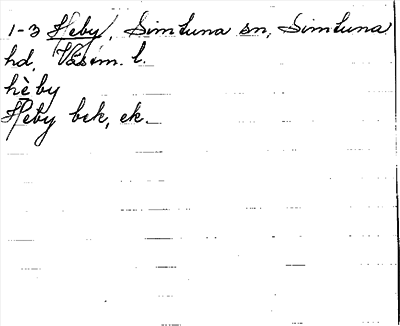 1-3 Heby, Simtuna sn, Simtuna
hd, Västm. l.
hè by
Heby bek, ek.